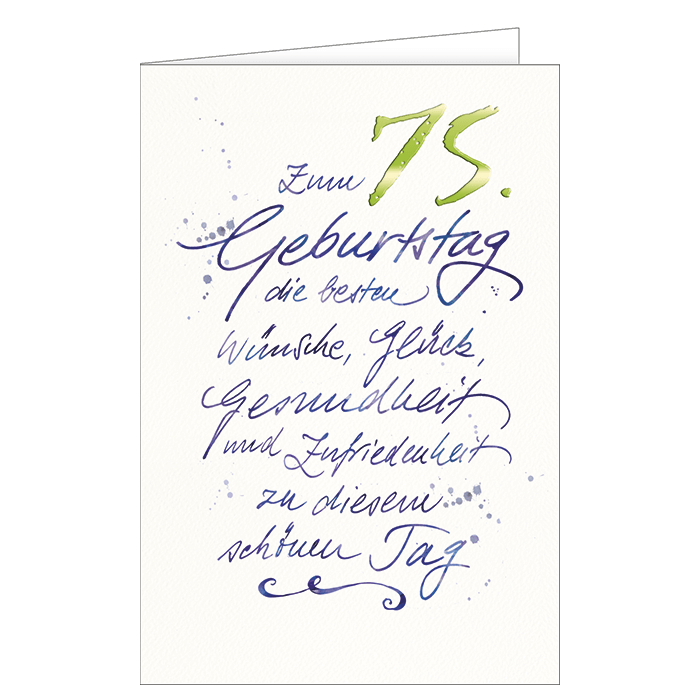 Zum 75.
Geburtstag
die besten
Wünsche, Glück,
Gesundheit
und Zufriedenheit
zu diesem
schönen Tag